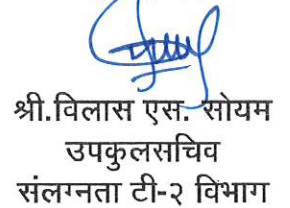 श्री.विलास एस. सोयम
उपकुलसचिव
संलग्नता टी-२ विभाग